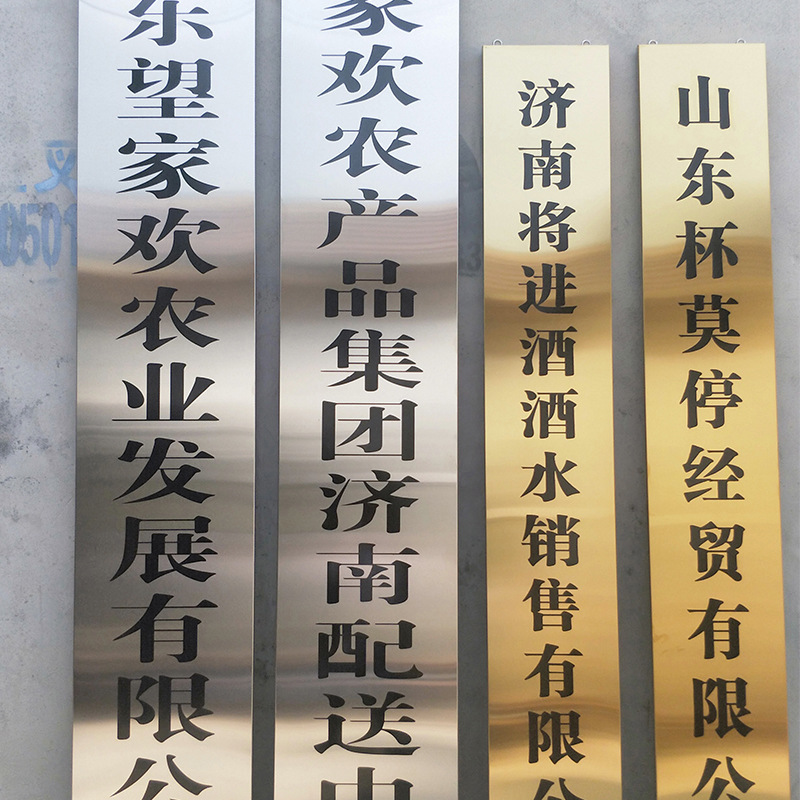 东望家欢农业发展有限公
家欢农产品集团济南配送中
济南将进酒酒水销售有限公
山东杯莫停经贸有限公
0501